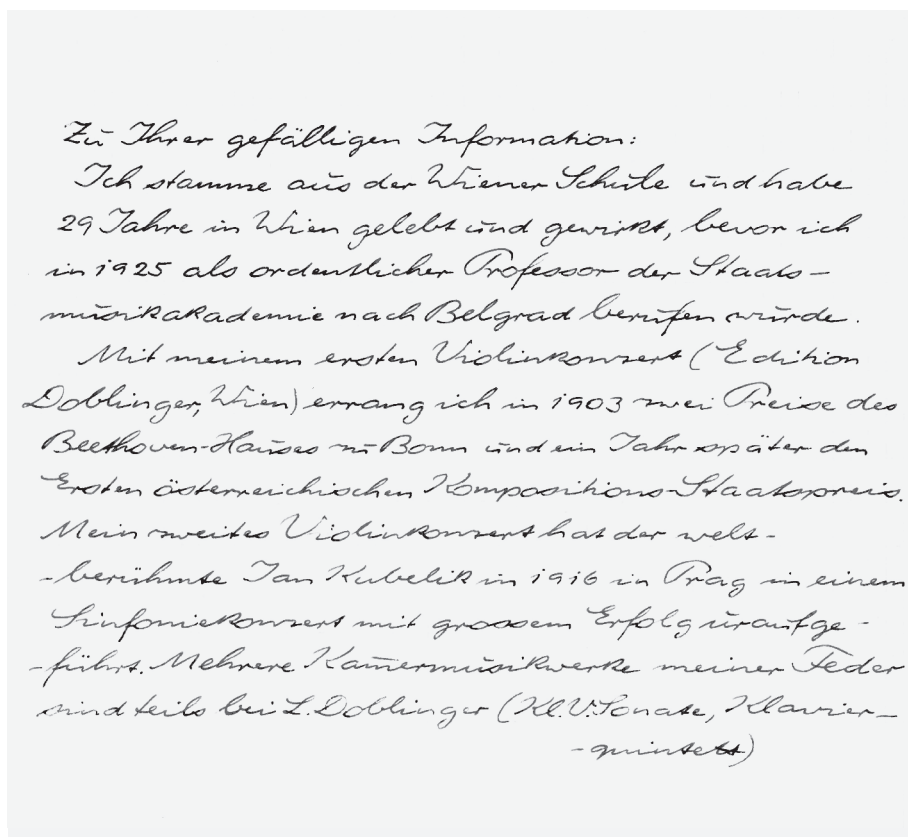 Zu Ihrer gefälligen Information:
Ich stamme aus der Wiener Schule und habe
29 Jahre in Wien gelebt und gewirkt, bevor ich
in 1925 als ordentlicher Professor der Staats-
musikakademie nach Belgrad berufen wurde.
Mit meinem ersten Violinkonzert (Edition
Doblinger, Wien) errang ich in 1903 zwei Preise des
Beethoven-Hauses zu Bonn und ein Jahr später den
Ersten österreichischen Kompositions-Staatspreis.
Mein zweites Violinkonzert hat der welt-
-berühmte Jan Kubelik in 1916 in Prag in einem
Sinfoniekonzert mit grossem Erfolg uraufge-
-führt. Mehrere Kam̄ermusikwerke meiner Feder
sind teils bei L. Doblinger (Kl.V.Sonate, Klavier-
-quintett)